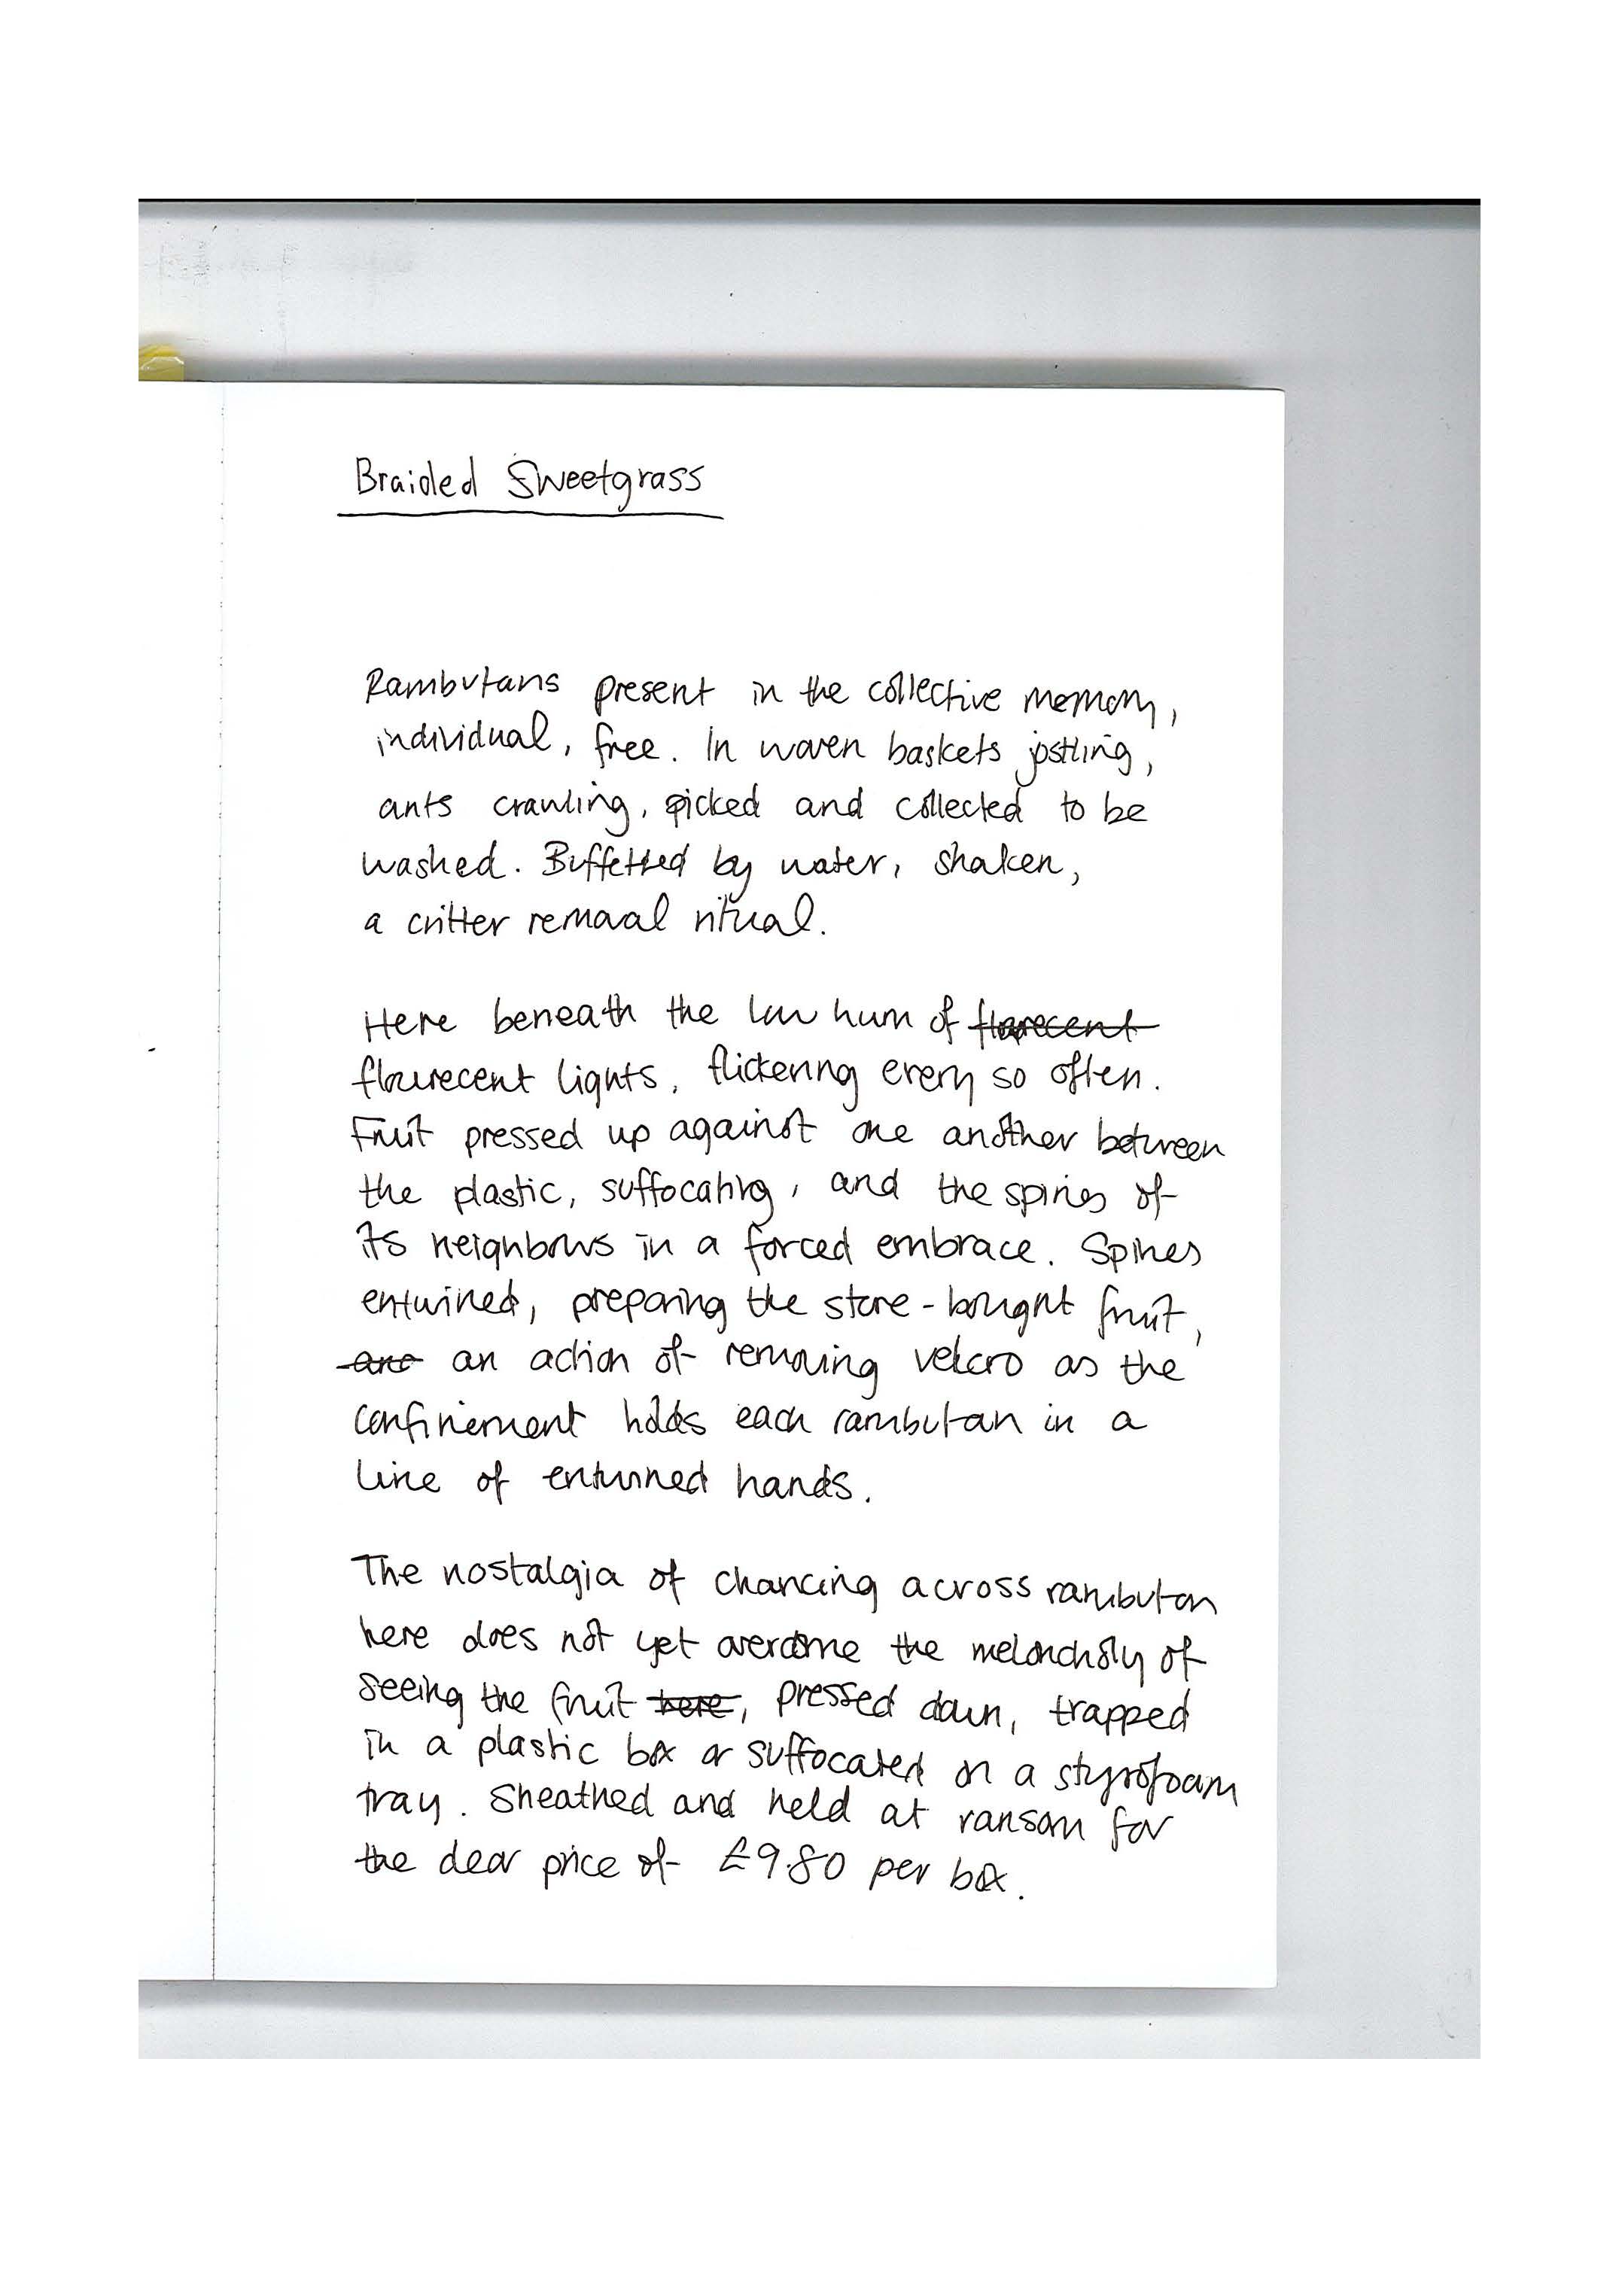 Braided Sweetgrass
Rambutans present in the collective memory,
individual, free. In woven baskets jostling,
ants crawling, picked and collected to be
washed. Buffetted by water, shaken,
a critter removal ritual.
Here beneath the low hum of florecent
flourecent lights, flickering every so often.
Fruit pressed up against one another between
the plastic, suffocating, and the spines of
its neighbours in a forced embrace. Spines
entwined, preparing the store-bought fruit,
are an action of removing velcro as the
confinement holds each rambutan in a
line of entwined hands.
The nostalgia of chancing across rambutan
here does not yet overcome the melancholy of
seeing the fruit here, pressed down, trapped
in a plastic box or suffocated on a styrofoam
tray. Sheathed and held at ransom for
the dear price of £9.80 per box.